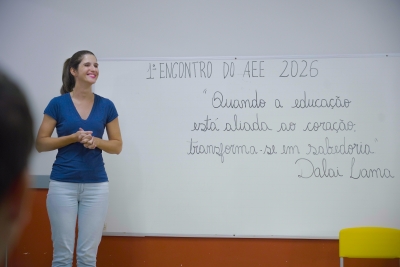 1º ENCONTRO DO AEE 2026
"Quando a educação
está aliada ao coração,
transforma-se em sabedoria"
Dalai Lama